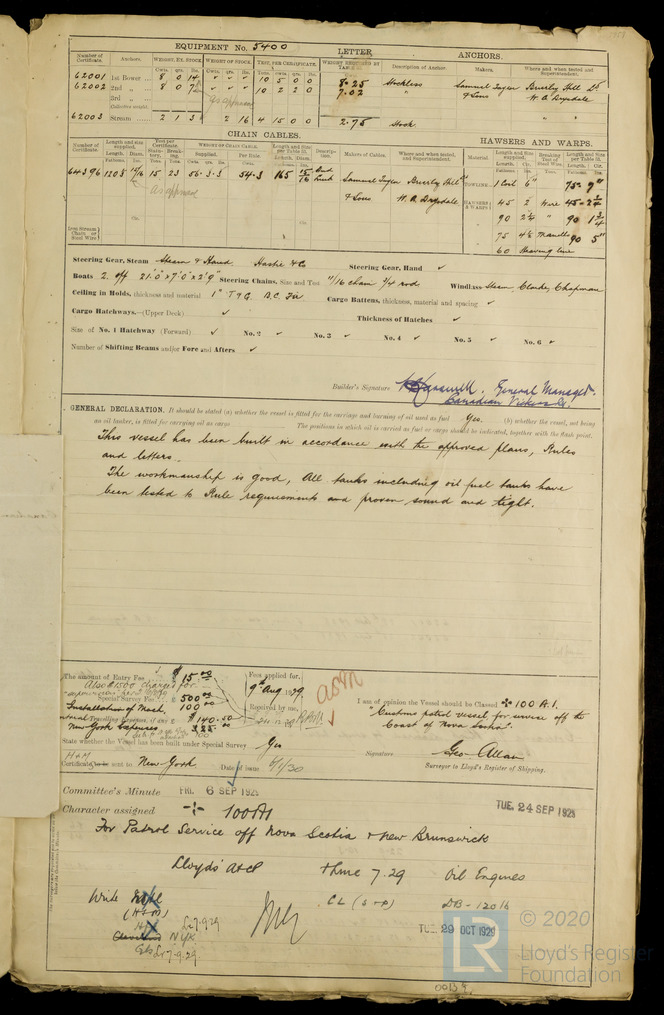 EQUIPMENT No. 5400
LETTER
ANCHORS.
Number of Certificate. Anchors. WEIGHT, EX. STOCK WEIGHT OF STOCK. TEST, PER CERTIFICATE. WEIGHT REQUIRED BY TABLE Description of Anchor. Makers. Where and when tested and Superintendent.
Cwts. qrs. lbs. Cwts. qrs. lbs. Tons. cwts. qrs. lbs.
62001 1st Bower 8 0 14 ✓ ✓ ✓ 10 5 0 0 8.25 Stockless Samuel Taylor Brierley Hill Ld
62002 2nd „ 8 0 7 ✓ ✓ ✓ 10 2 2 0 7.02 & Sons W. A. Drysdale
3rd „ Yes approved
Collective weight
62003 Stream 2 1 3 2 16 4 15 0 0 2.75 Stock
CHAIN CABLES.
HAWSERS AND WARPS.
Number of Certificate. Length and size supplied. Test per Certificate. WEIGHT OF CHAIN CABLE. Length and Size per Table 53. Description. Makers of Cables. Where and when tested, and Superintendent. Material. Length and Size supplied. Breaking Test of Steel Wire. Length and Size per Table 53.
64396 120 8 15/16 15 23 56.3.3 54.3 165 15/16 Stud Link Samuel Taylor Brierley Hill TOWLINE 1 Coil 6" 75 - 9"
as approved & Sons W. A. Drysdale HAWSERS & WARPS 45 2 Wire 45 - 2 1/4
90 2 1/4 " 90 1 3/4
75 4 1/2 Manilla 90 5"
60 Heaving line
Steering Gear, Steam Steam & Hand Hastie & Co Steering Gear, Hand ✓
Boats 2. off 21'0" x 7'0" x 2'9" Steering Chains, Size and Test 11/16 chain 3/4 rod Windlass Steam, Clarke, Chapman
Ceiling in Holds, thickness and material 1" T & G. B.C. Fir Cargo Battens, thickness, material and spacing ✓
Cargo Hatchways.—(Upper Deck) ✓ Thickness of Hatches ✓
Size of No. 1 Hatchway (Forward) ✓ No. 2 ✓ No. 3 ✓ No. 4 ✓ No. 5 ✓ No. 6 ✓
Number of Shifting Beams and/or Fore and Afters ✓
Builder's Signature General Manager.
Canadian Vickers Ld.
GENERAL DECLARATION. It should be stated (a) whether the vessel is fitted for the carriage and burning of oil used as fuel Yes. (b) whether the vessel, not being
an oil tanker, is fitted for carrying oil as cargo The positions in which oil is carried as fuel or cargo should be indicated, together with the flash point.
This vessel has been built in accordance with the approved plans, Rules
and letters.
The workmanship is good, All tanks including oil fuel tanks have
been tested to Rule requirements and proven sound and tight.
The amount of Entry Fee $ 15.00 Fees applied for,
Also $1500 charges for 9th Aug 1929.
Special Survey Fee $ 500.00 Received by me,
Installation of Mach. 100.00
Travelling Expenses, if any $ 140.50
New York Expenses $ 25.00
I am of opinion the Vessel should be Classed ✠ 100 A.1.
"Customs patrol vessel for service off the
Coast of Nova Scotia".
State whether the Vessel has been built under Special Survey Yes
Signature Geo Allan
Surveyor to Lloyd's Register of Shipping.
H+M
Certificate sent to New York Date of issue 6/1/30
Committee's Minute FRI. 6 SEP 1929
TUE. 24 SEP 1929
Character assigned -✠- 100A1
For Patrol Service off Nova Scotia & New Brunswick
Lloyds' A&CP + LMC 7.29 Oil Engines
CL (S+P) DB - 120 lb
Write
(H+M)
Lr 7-9-29
Cleveland N Y/K
Lr 7-9-29
TUE. 29 OCT 1929
LR
© 2020
Lloyd's Register
Foundation